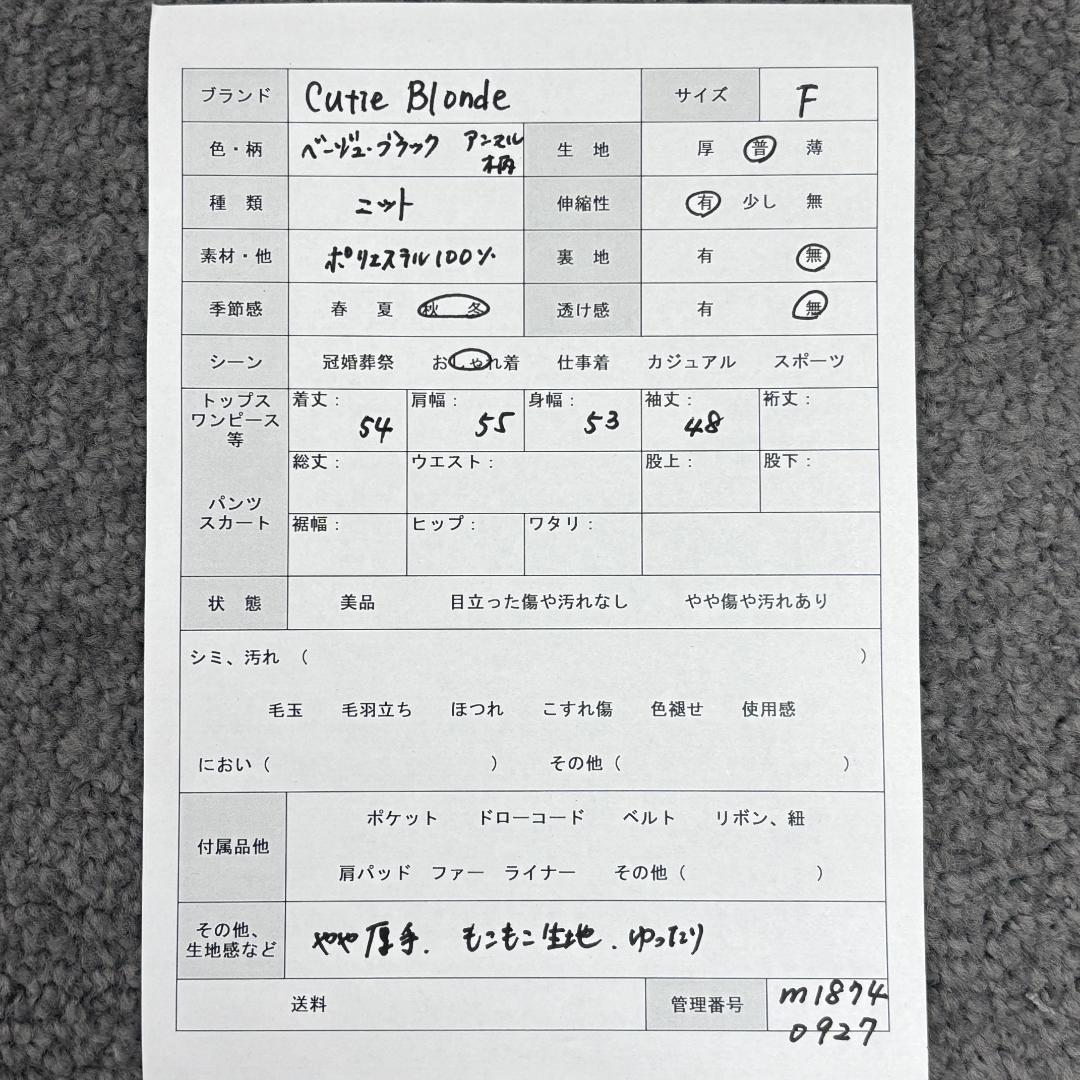 ブランド Cutie Blonde サイズ F
色・柄 ベージュ・ブラック アンスル柄 生 地 厚 普 薄
種 類 ニット 伸縮性 有 少し 無
素材・他 ポリエステル100% 裏 地 有 無
季節感 春 夏 秋 冬 透け感 有 無
シーン 冠婚葬祭 おしゃれ着 仕事着 カジュアル スポーツ
トップス
ワンピース
等
着丈： 54 肩幅： 55 身幅： 53 袖丈： 48 裄丈：
総丈： ウエスト： 股上： 股下：
パンツ
スカート
裾幅： ヒップ： ワタリ：
状 態 美品 目立った傷や汚れなし やや傷や汚れあり
シミ、汚れ （ ）
毛玉 毛羽立ち ほつれ こすれ傷 色褪せ 使用感
におい（ ） その他（ ）
付属品他
ポケット ドローコード ベルト リボン、紐
肩パッド ファー ライナー その他（ ）
その他、
生地感など
やや厚手. もこもこ生地. ゆったり
送料 管理番号 m1874
0927